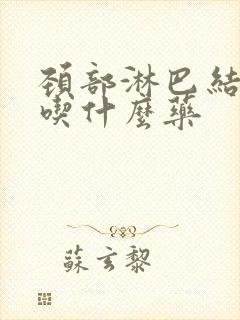 頚部淋巴結
喫什麼藥
蘇玄黎